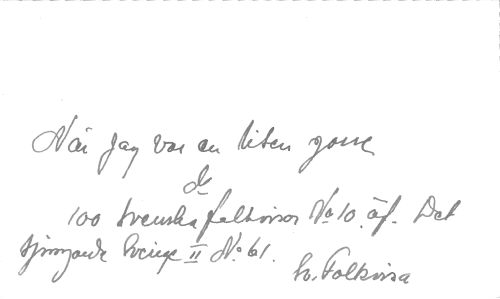 När jag var en liten gosse
ur
100 Svenska folkvisor No 10. äf. Det
sjungande Sverige II No 61.
Sv. Folkvisa